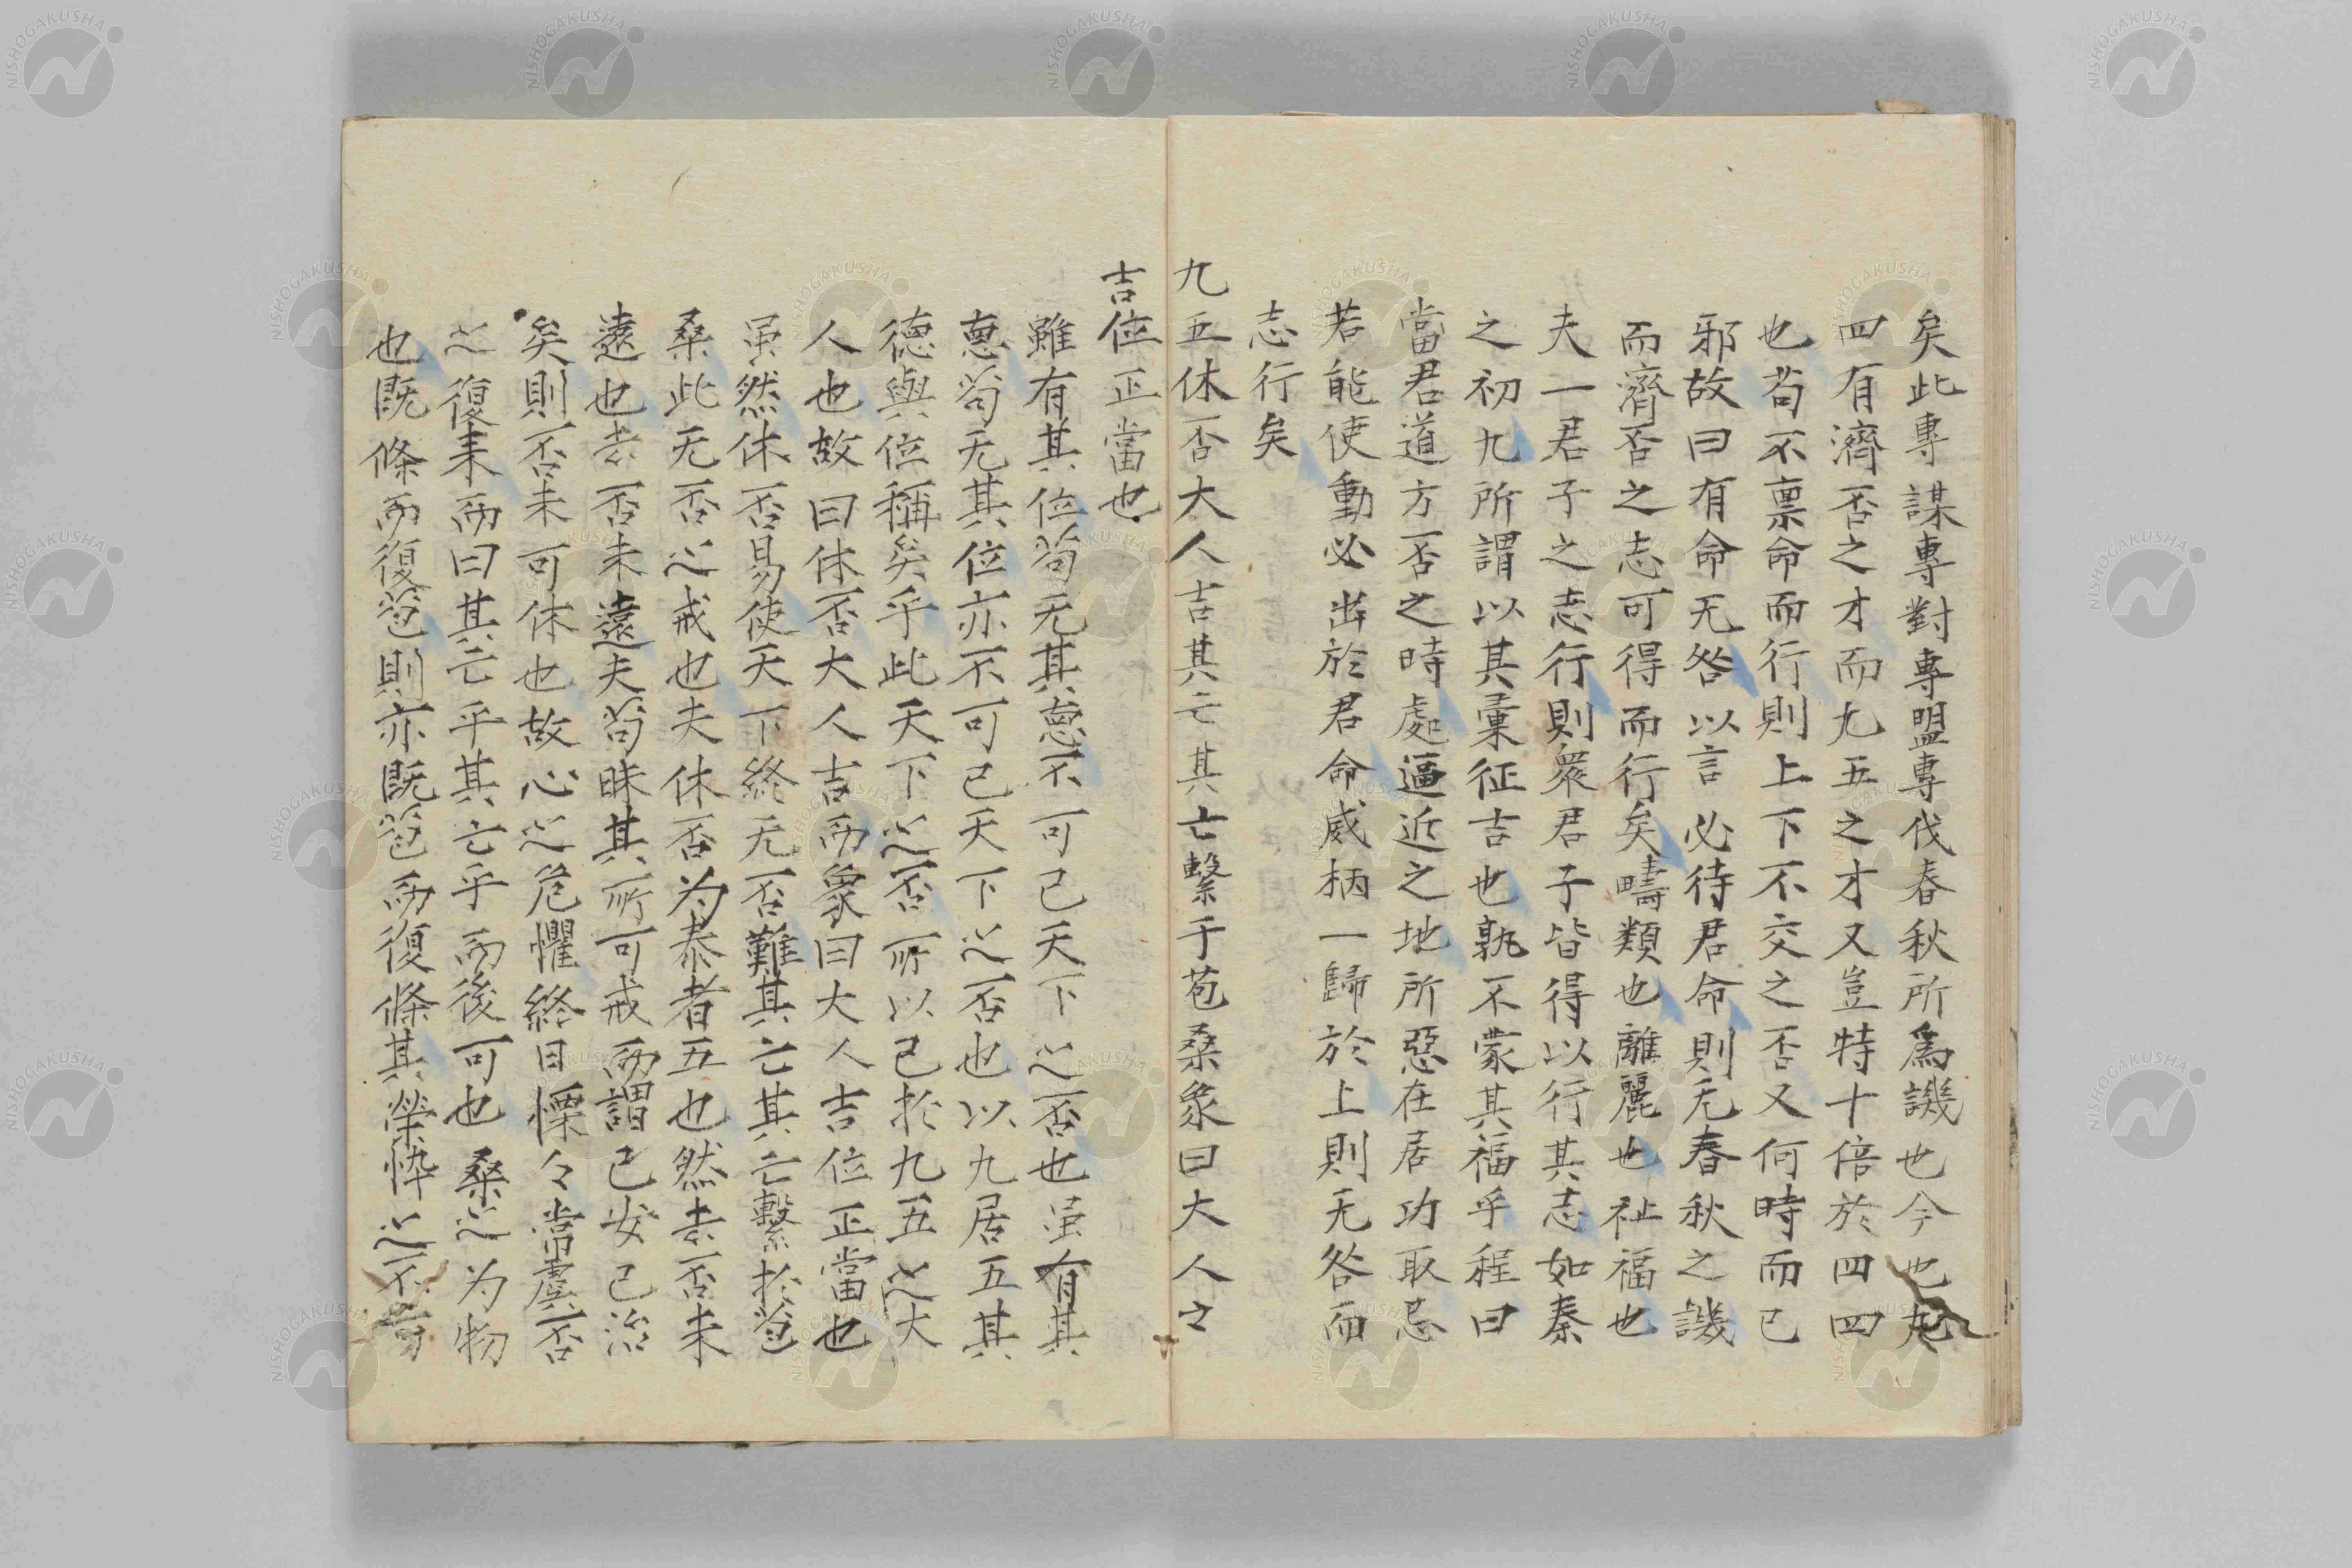 矣此專謀專對專盟專伐春秋所爲譏也今也
四有濟否之才而九五之才又豈特十倍於四四
也苟不禀命而行則上下不交之否又何時而已
邪故曰有命无咎以言必待君命則无春秋之譏
而濟否之志可得而行矣疇類也離麗也祉福也
夫一君子之志行則衆君子皆得以行其志如秦
之初九所謂以其彙征吉也孰不蒙其福乎程曰
當君道方否之時處逼近之地所惡在居功取忌
若能使動必出於君命威柄一歸於上則无咎而
志行矣
九五休否大人吉其亡其亡繫于苞桑象曰大人之
吉位正當也
雖有其位苟无其悳不可已天下之否也虽有其
悳苟无其位亦不可已天下之否也以九居五其
德與位稱矣乎此天下之否所以已於九五之大
人也故曰休否大人吉而象曰大人吉位正當也
虽然休否易使天下終无否難其亡其亡繫於苞
桑此无否之戒也夫休否为泰者五也然去否未
遠也去否未遠夫苟昧其所可戒而謂已安已治
矣則否未可休也故心之危懼終日慄々常虞否
之復来而曰其亡乎其亡乎而後可也桑之为物
也既條而復苞則亦既苞而復條其榮悴之不
NISHOGAKUSHA